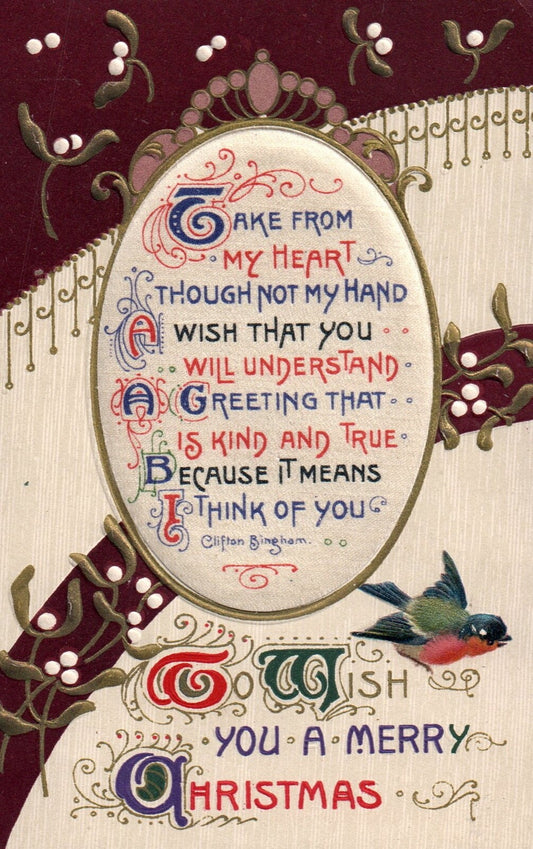 TAKE FROM
MY HEART
THOUGH NOT MY HAND
A WISH THAT YOU
WILL UNDERSTAND
A GREETING THAT
IS KIND AND TRUE
BECAUSE IT MEANS
I THINK OF YOU
Clifton Bingham.
TO WISH
YOU A MERRY
CHRISTMAS